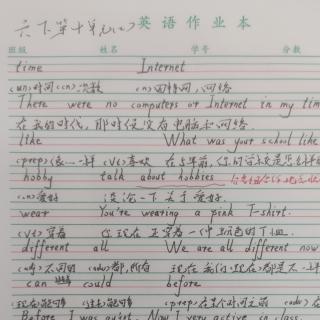 六下第十单元(1) 英语作业本
班级 姓名 学号 分数
time Internet
(un)时间(cn)次数 (n)因特网,网络
There were no computers or Internet in my tim
在我的时代,那时候没有电脑和网络.
like What was your school like
(prep)像…一样 (vt)喜欢 在5年前,你的学校是
hobby talk about hobbies
(n)爱好 谈论一下关于爱好.
wear You're wearing a pink T-shirt.
(vt)穿着 你现在正穿着一件粉色的T恤.
different all We are all different now
(adj)不同的 (adv)都,所有 现在我们(现在)都是不一样
can could before
(现在)能可以 (过去)能可以 (prep)在某个时间之前 (adv)在
Before I was quiet. Now I'm very active in class.